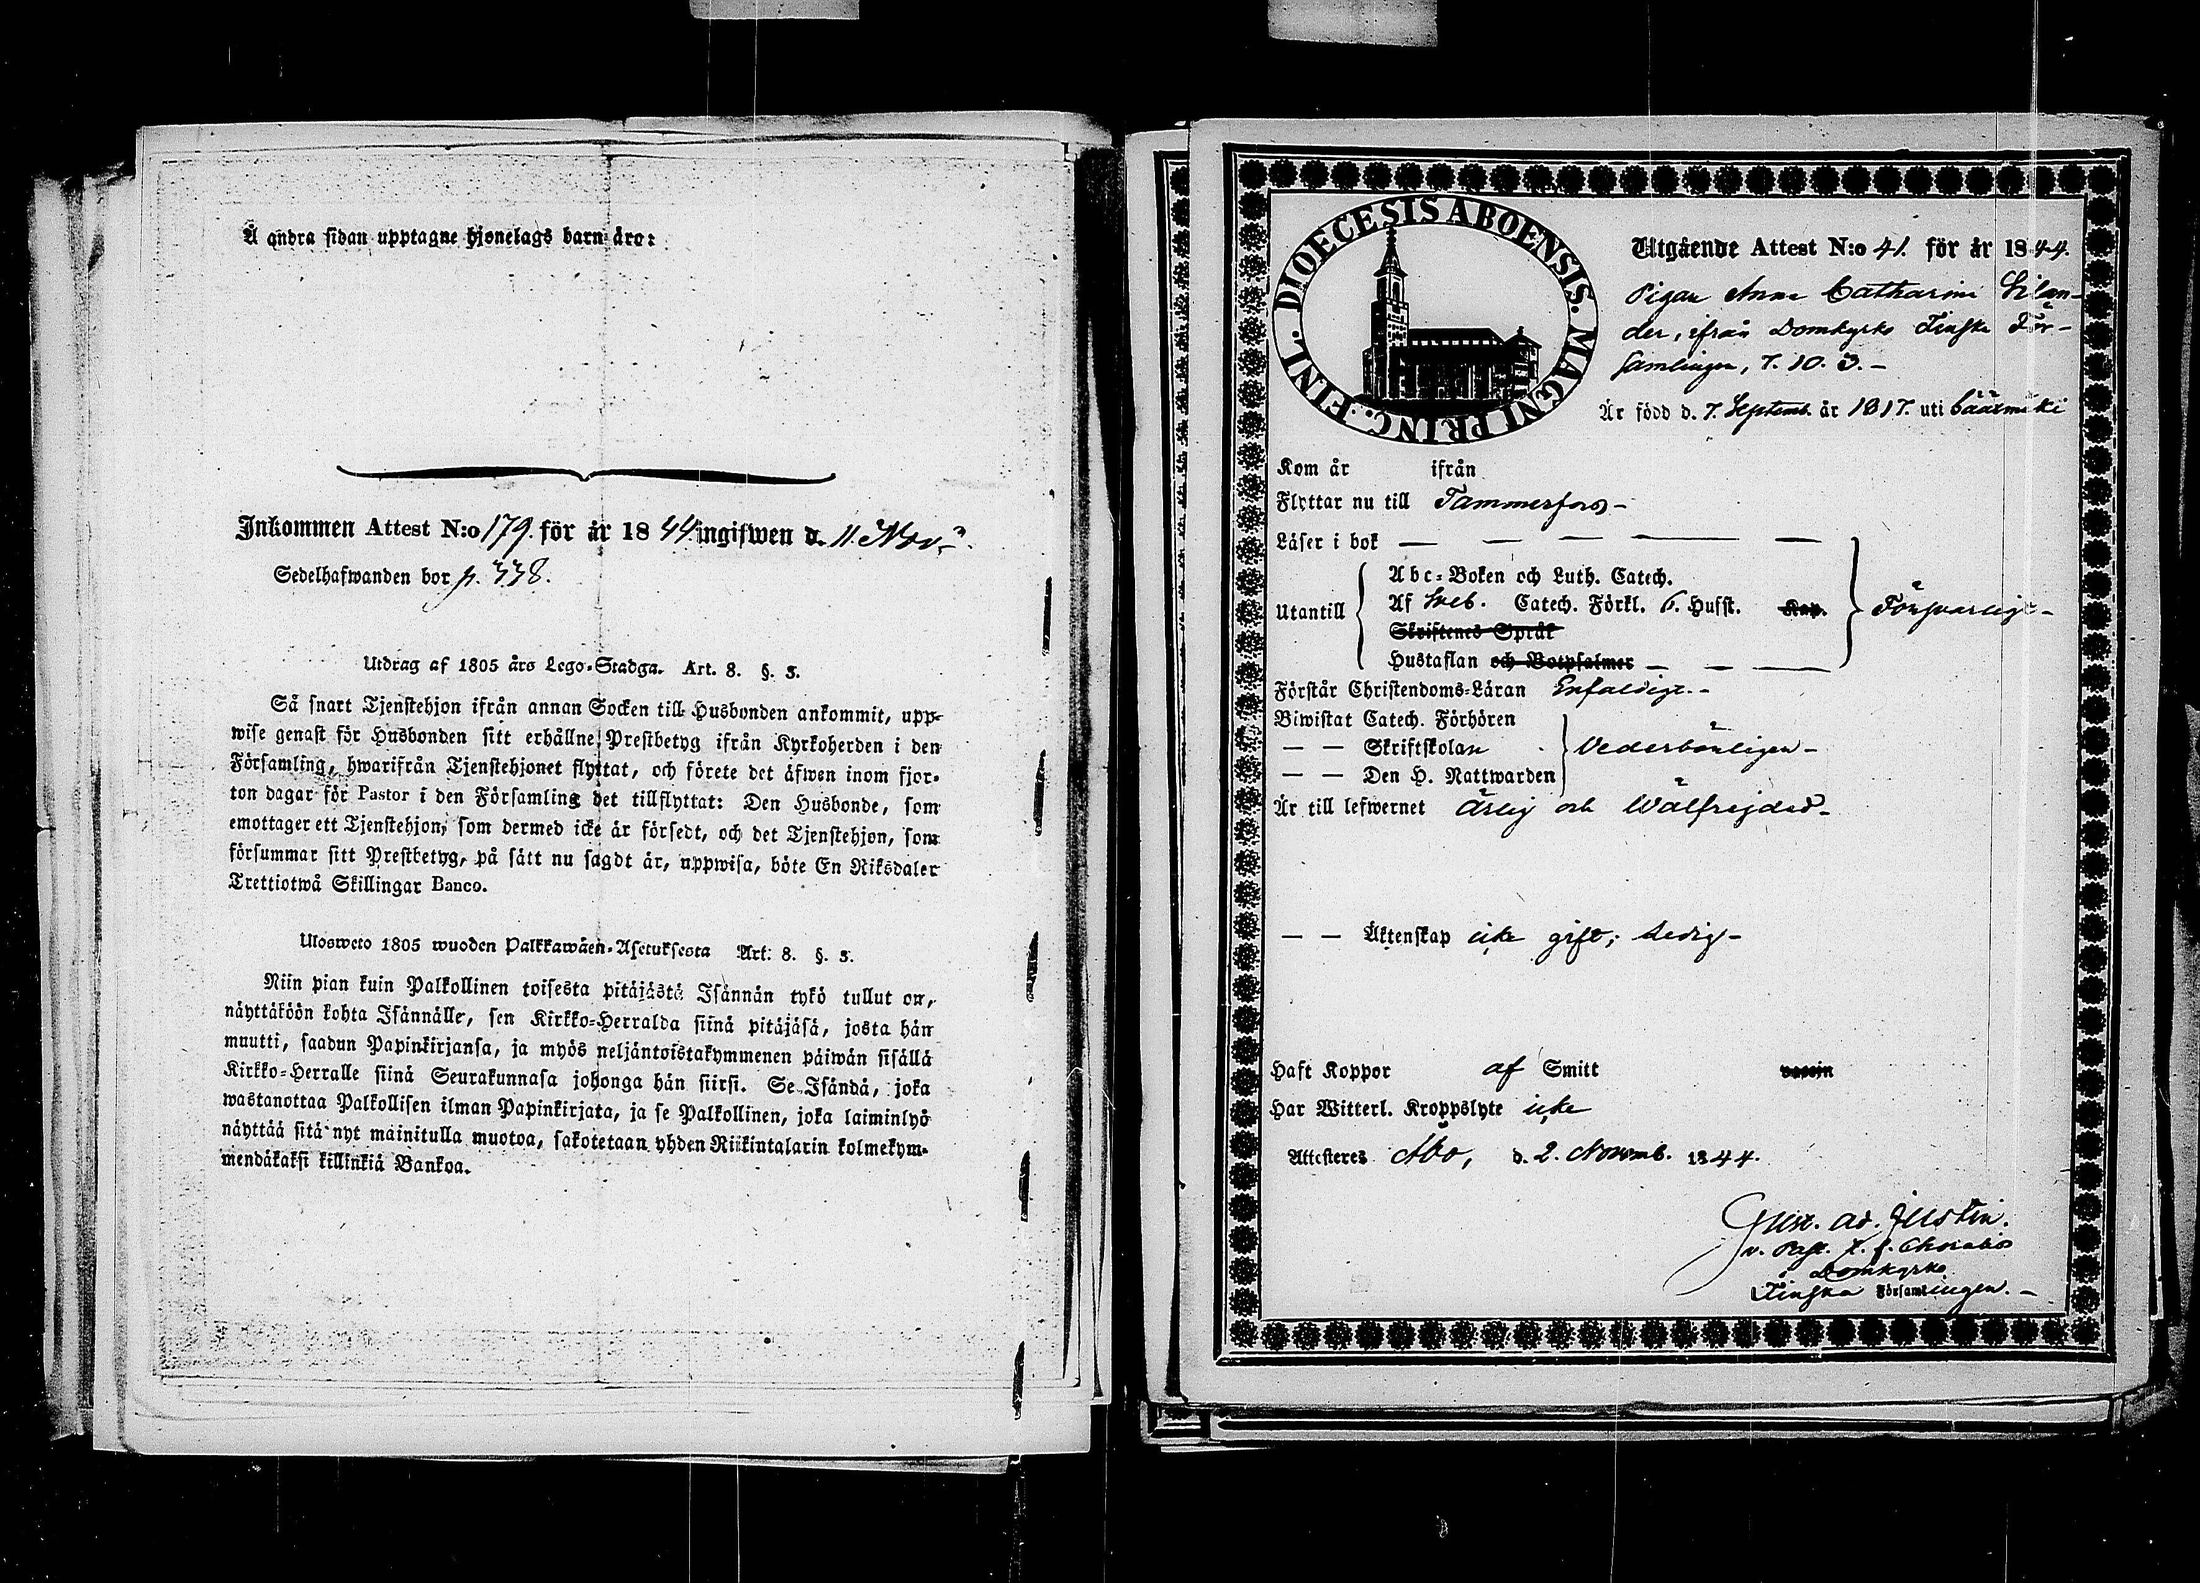 Å andra sidan upptagne hjonelags barn äro:
Inkommen Attest N:o 179. för år 1844 ingifwen d. 11. Nov.
Sedelhafwanden bor p. 338.
Utdrag af 1805 års Lego-Stadga. Art. 8. §. 3.
Så snart Tjenstehjon ifrån annan Socken till Husbonden ankommit, upp-
wise genast för Husbonden sitt erhållne Prestbetyg ifrån Kyrkoherden i den
Församling, hwarifrån Tjenstehjonet flyttat, och förete det äfwen inom fjor-
ton dagar för Pastor i den Församling det tillflyttat: Den Husbonde, som
emottager ett Tjenstehjon, som dermed icke är försedt, och det Tjenstehjon, som
försummar sitt Prestbetyg, på sätt nu sagdt är, uppwisa, böte En Riksdaler
Trettiotwå Skillingar Banco.
Ulosweto 1805 wuoden Palkkawäen-Asetuksesta Art. 8. §. 3.
Niin pian kuin Palkollinen toisesta pitäjästä Isännän tykö tullut on,
näyttäköön kohta Isännälle, sen Kirkko-Herralda siinä pitäjäsä, josta hän
muutti, saadun Papinkirjansa, ja myös neljäntoistakymmenen päiwän sisällä
Kirkko-Herralle siinä Seurakunnasa johonga hän siirsi. Se Isändä, joka
wastanottaa Palkollisen ilman Papinkirjata, ja se Palkollinen, joka laiminlyö
näyttää sitä nyt mainitulla muotoa, sakotetaan yhden Riikintalarin kolmekym-
mendäkaksi killinkiä Bankoa.
DIOECESIS ABOENSIS. MAGNI PRINC. FINL.
Utgående Attest N:o 41. för år 1844.
Pigan Anna Catharina Silan-
der, ifrån Domkyrko Finska För-
samlingen, 7. 10. 3. -
Är född d. 7. Septemb. år 1817. uti Säärmäki
Kom år ifrån
Flyttar nu till Tammerfors -
Läser i bok
Utantill
Abc-Boken och Luth. Catech.
Af Sveb. Catech. Förkl. 6. Husst. Kap. Försvarligt -
Skriftenes Språk
Hustaflan och Botpsalmer
Förstår Christendoms-Läran Enfaldigt. -
Biwistat Catech. Förhören
— — Skriftskolan Vederbörligen -
— — Den H. Nattwarden
Är till lefwernet Ärlig och Wälfrejdad -
— — Äktenskap icke gift; Ledig -
Haft Koppor af Smitt vaccin
Har Witterl. Kroppslyte icke
Attesteres Åbo, d. 2. Novemb. 1844.
Gust. Ad. Justin.
v. Past. Åbo
Domkyrko
Finska Församlingen. -